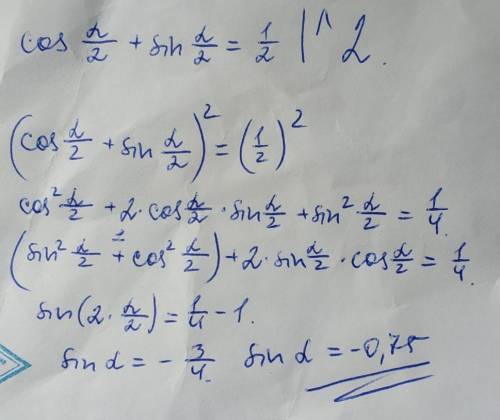 cos α/2 + sin α/2 = 1/2 | ^ 2.
(cos α/2 + sin α/2)² = (1/2)²
cos² α/2 + 2·cos α/2 · sin α/2 + sin² α/2 = 1/4.
(sin² α/2 + cos² α/2) + 2·sin α/2 · cos α/2 = 1/4.
1
sin(2·α/2) = 1/4 - 1.
sin α = - 3/4. sin α = -0,75